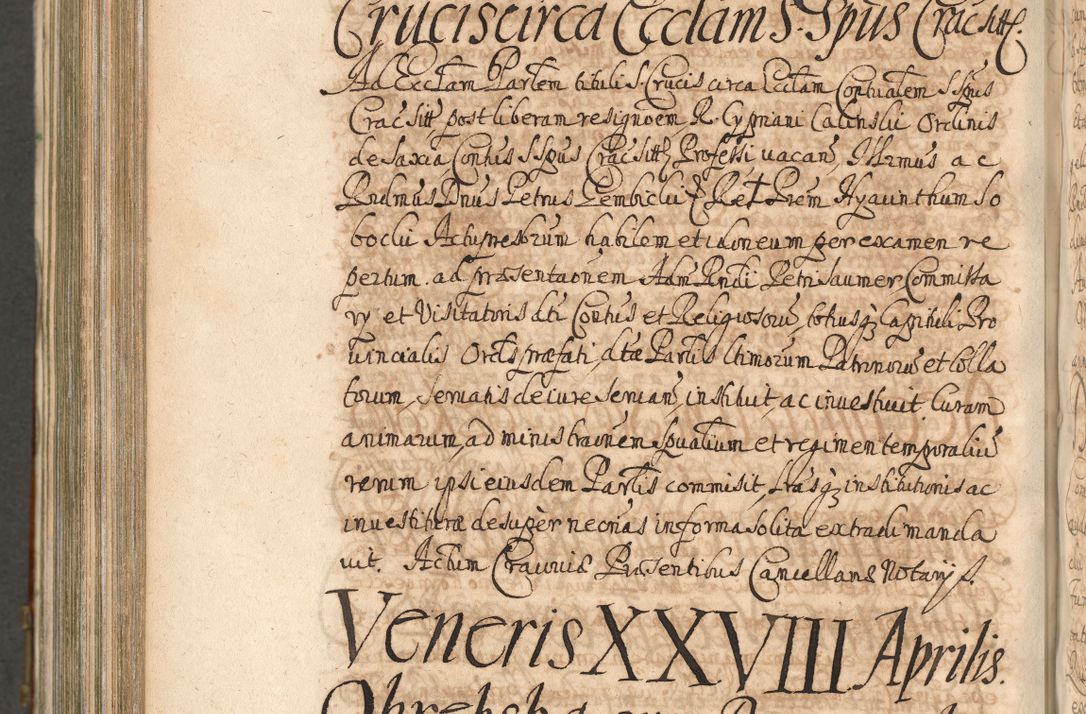 Crucis circa Ecclam S. Spus Crac sitt.
Ad Ecclam Parlem tituli S. Crucis circa Ecclam Contualem S Spus
Crac sitt post liberam resignoem R. Cypriani Calinslii Ordinis
de Saxia Contus S Spus Crac sitt Professi vacan Illrmus ac
Rndmus Dnus Petrus Gembiclii Prem Hyacinthum So
boclii Actu presbrum habilem et idoneum per examen re
pertum. ad praesentaonem Adm Rndi Petri Saumer Commissa
ry et Visitatoris dti Contus et Religiosoru totiusq Capituli Pro
vincialis Ordis praefati, dtae Parlis ltimorum Patronoru et Colla
torum, servatis de iure servan, instituit ac investivit. Curam
animarum, administraonem spualium et regimen temporaliu
rerum ipsi eiusdem Parlis commisit, lrasq institutionis ac
investiturae desuper necrias in forma solita extradi manda
vit. Actum Cracoviae Praesentibus Cancellario Notary s.
Veneris XXVIII Aprilis.